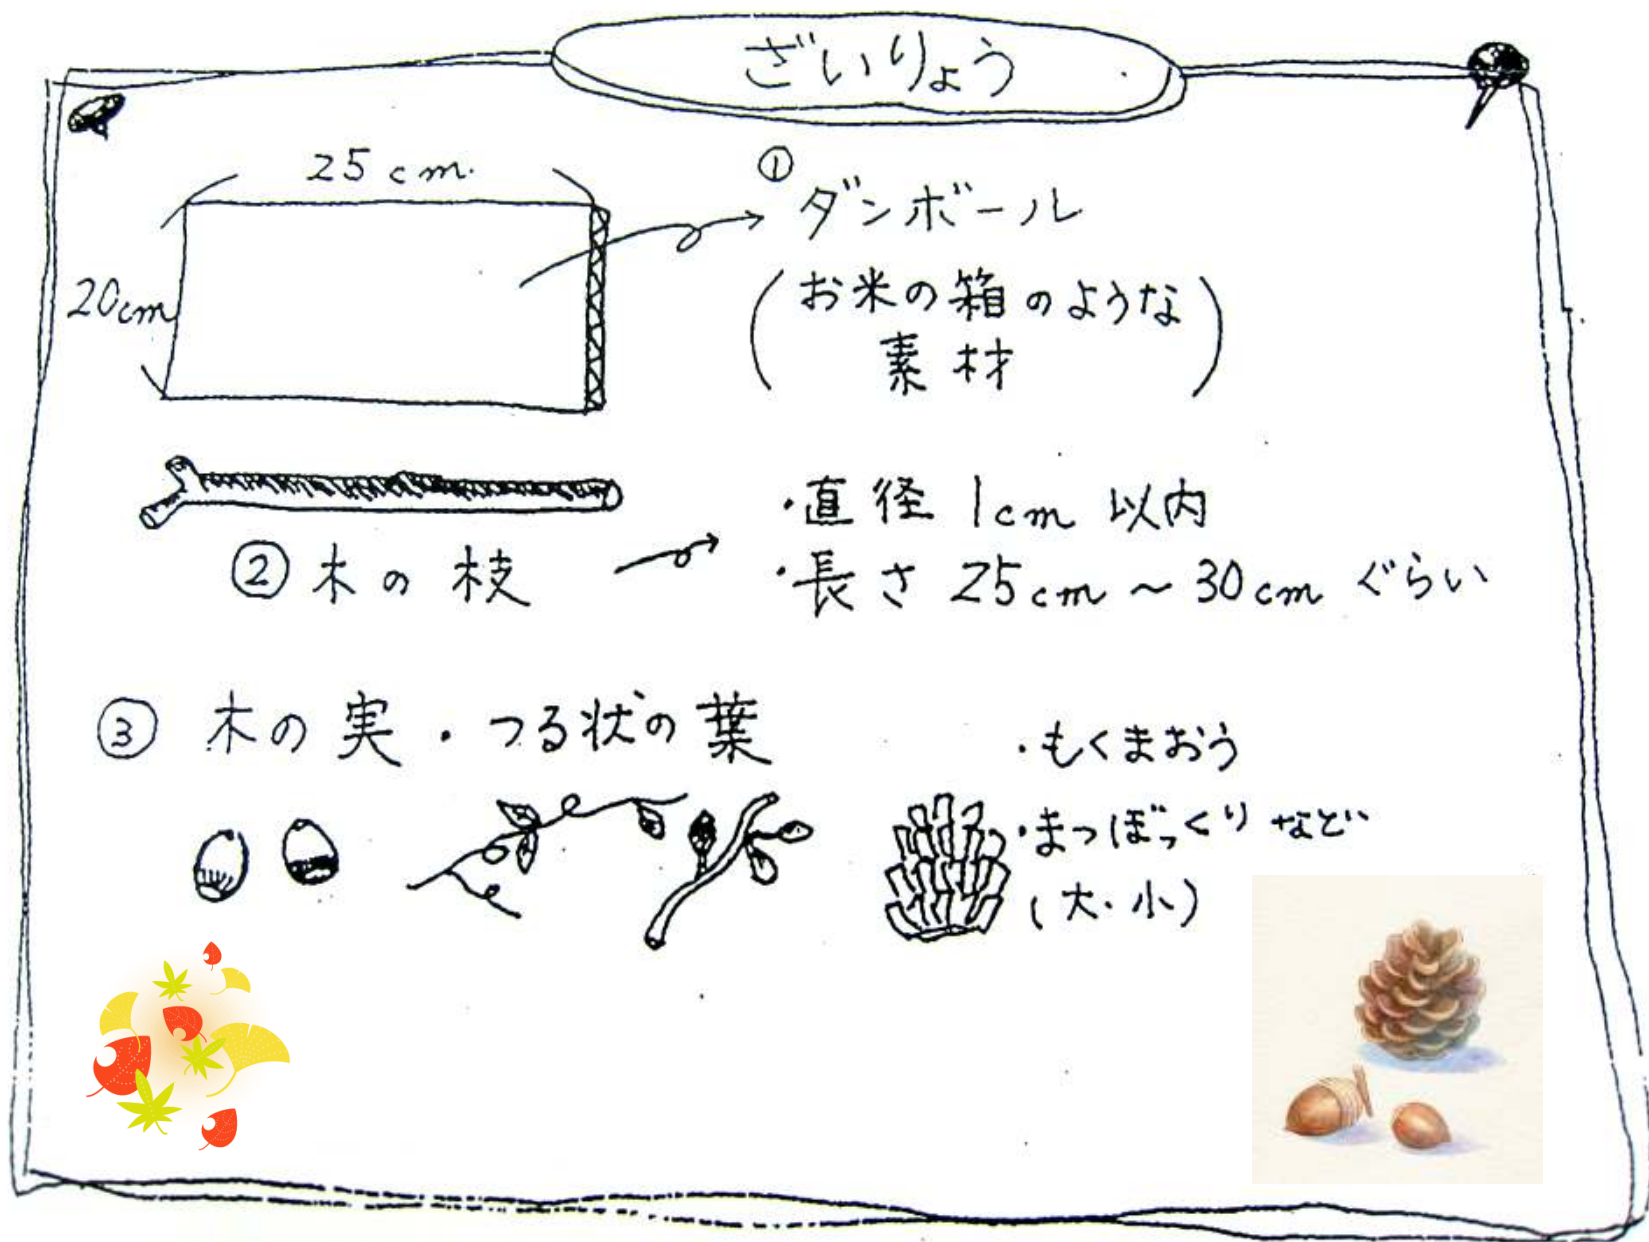 ざいりょう
25cm
20cm
①
ダンボール
(お米の箱のような
素材)
②木の枝
・直径 1cm 以内
・長さ 25cm〜30cm ぐらい
③ 木の実・つる状の葉
・もくまおう
・まつぼっくり など
(大・小)